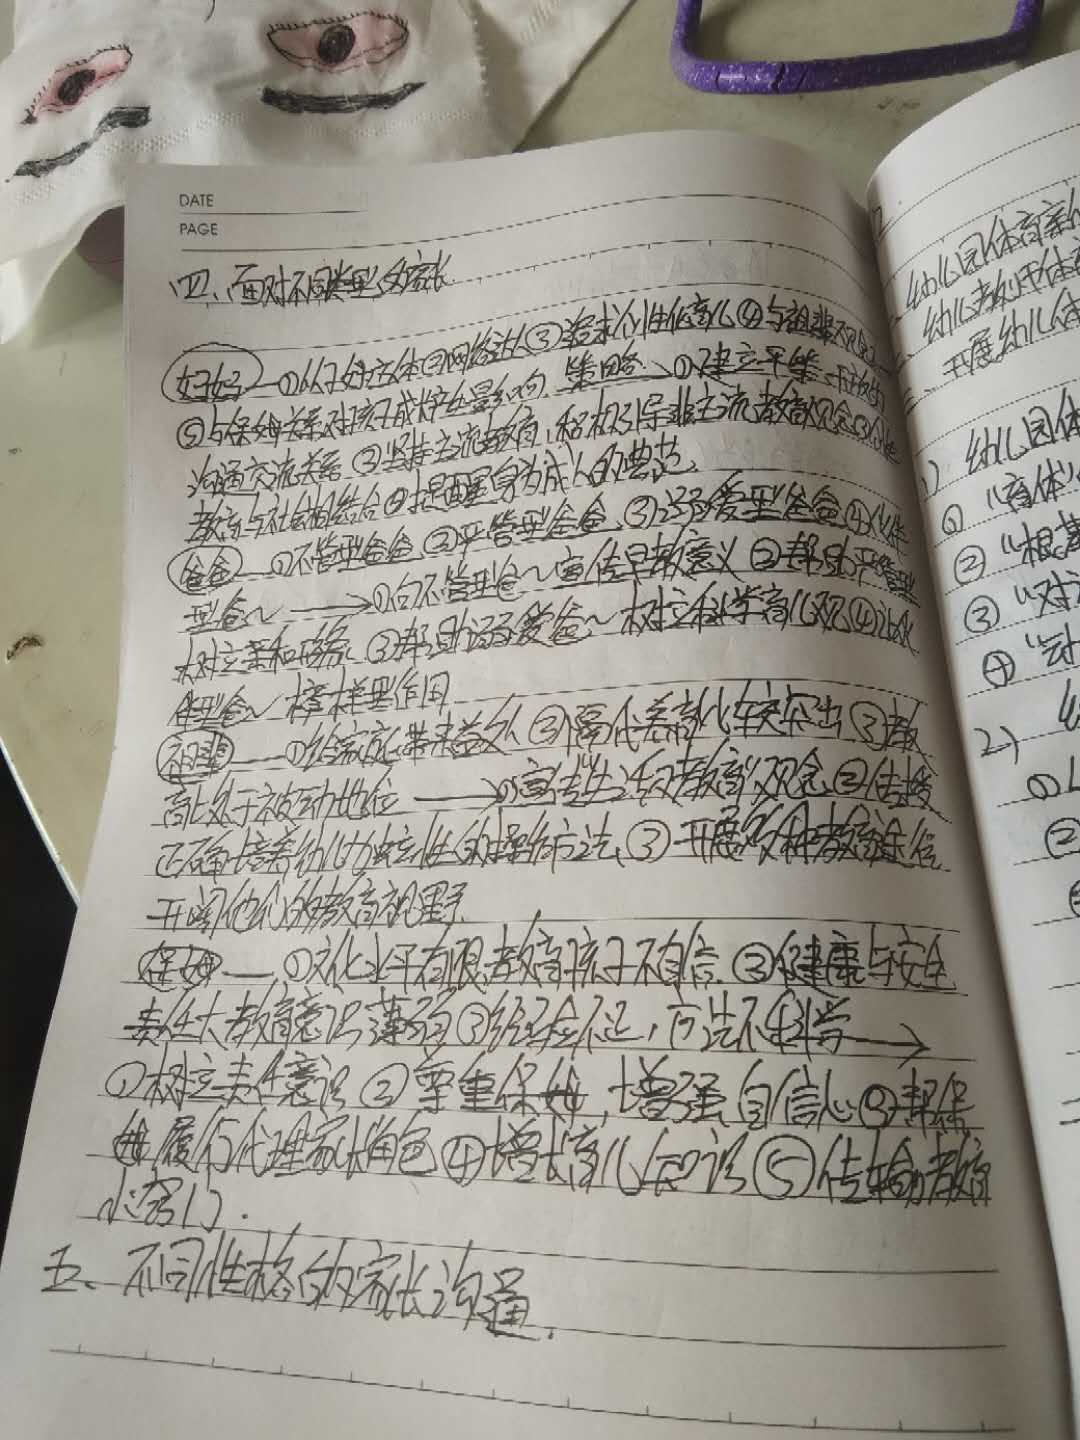 DATE
PAGE
四、面对不同类型的家长
妈妈 — ①以好立体 ②网络达人 ③追求个性化育儿 ④与祖辈不
⑤与保姆关系对孩子成长处影响 策略 → ①建立平等、开放的
沟通交流关系 ②坚持主流教育、积极引导非主流教育观念 ③
教育与社会相结合 ④提醒身为成人的典范
爸爸 — ①不管型爸爸 ②严管型爸爸 ③溺爱型爸爸 ④伙伴
型爸~ → ①向不管型爸~宣传早教意义 ②帮助严管型
树立柔和形象、③帮助溺爱爸~树立科学育儿观 ④让伙
伴型爸~榜样型作用
祖辈 — ①给家庭带来益处 ②隔代养育比较突出 ③教
育处于被动地位 → ①宣传生活即教育观念 ②传授
正确培养幼儿独立性的操作方法、③开展多种教育途径
开阔他们的教育视野
保姆 — ①文化水平有限教育孩子不自信 ②健康与安全
责任大教育意识薄弱 ③经验不足,方法不科学 →
①树立责任意识 ②尊重保姆,增强自信心 ③帮保
姆履行代理家长角色 ④增长育儿知识 ⑤传输教育
小窍门.
五、不同性格的家长沟通.
幼儿园体育
幼儿教师体
开展幼儿体
1) 幼儿园体
① "育体"
② "根
③ "对
④ "
2)
①
②